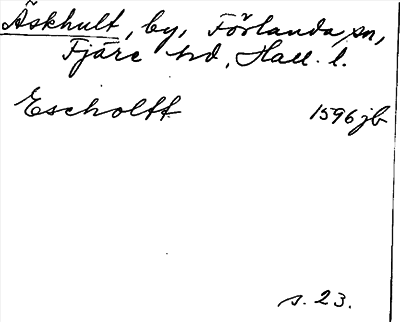 Äskhult, by, Förlanda sn,
Fjäre hd, Hall. l.
Escholtt 1596 jb
s. 23.